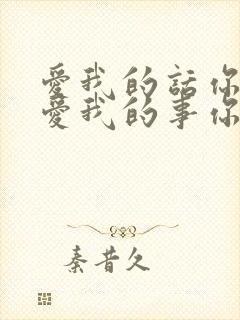 愛我的話你
愛我的事你
秦昔久